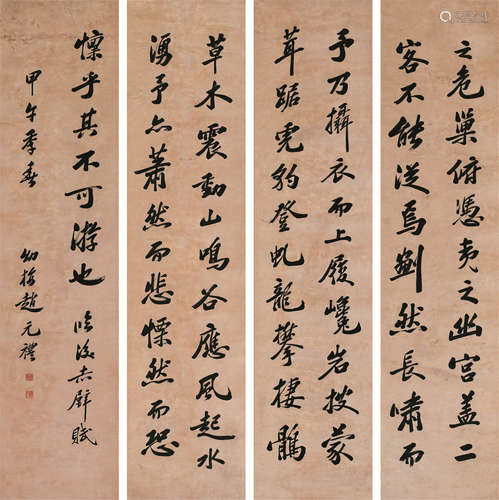 之危巢俯憑夷之幽宮蓋二
客不能從焉劃然長嘯而
予乃攝衣而上履巉岩披蒙
茸踞虎豹登虬龍攀棲鶻
草木震動山鳴谷應風起水
湧予亦蕭然而悲慄然而恐
懍乎其不可游也 臨後赤壁賦
甲午季春 幼梅趙元禮